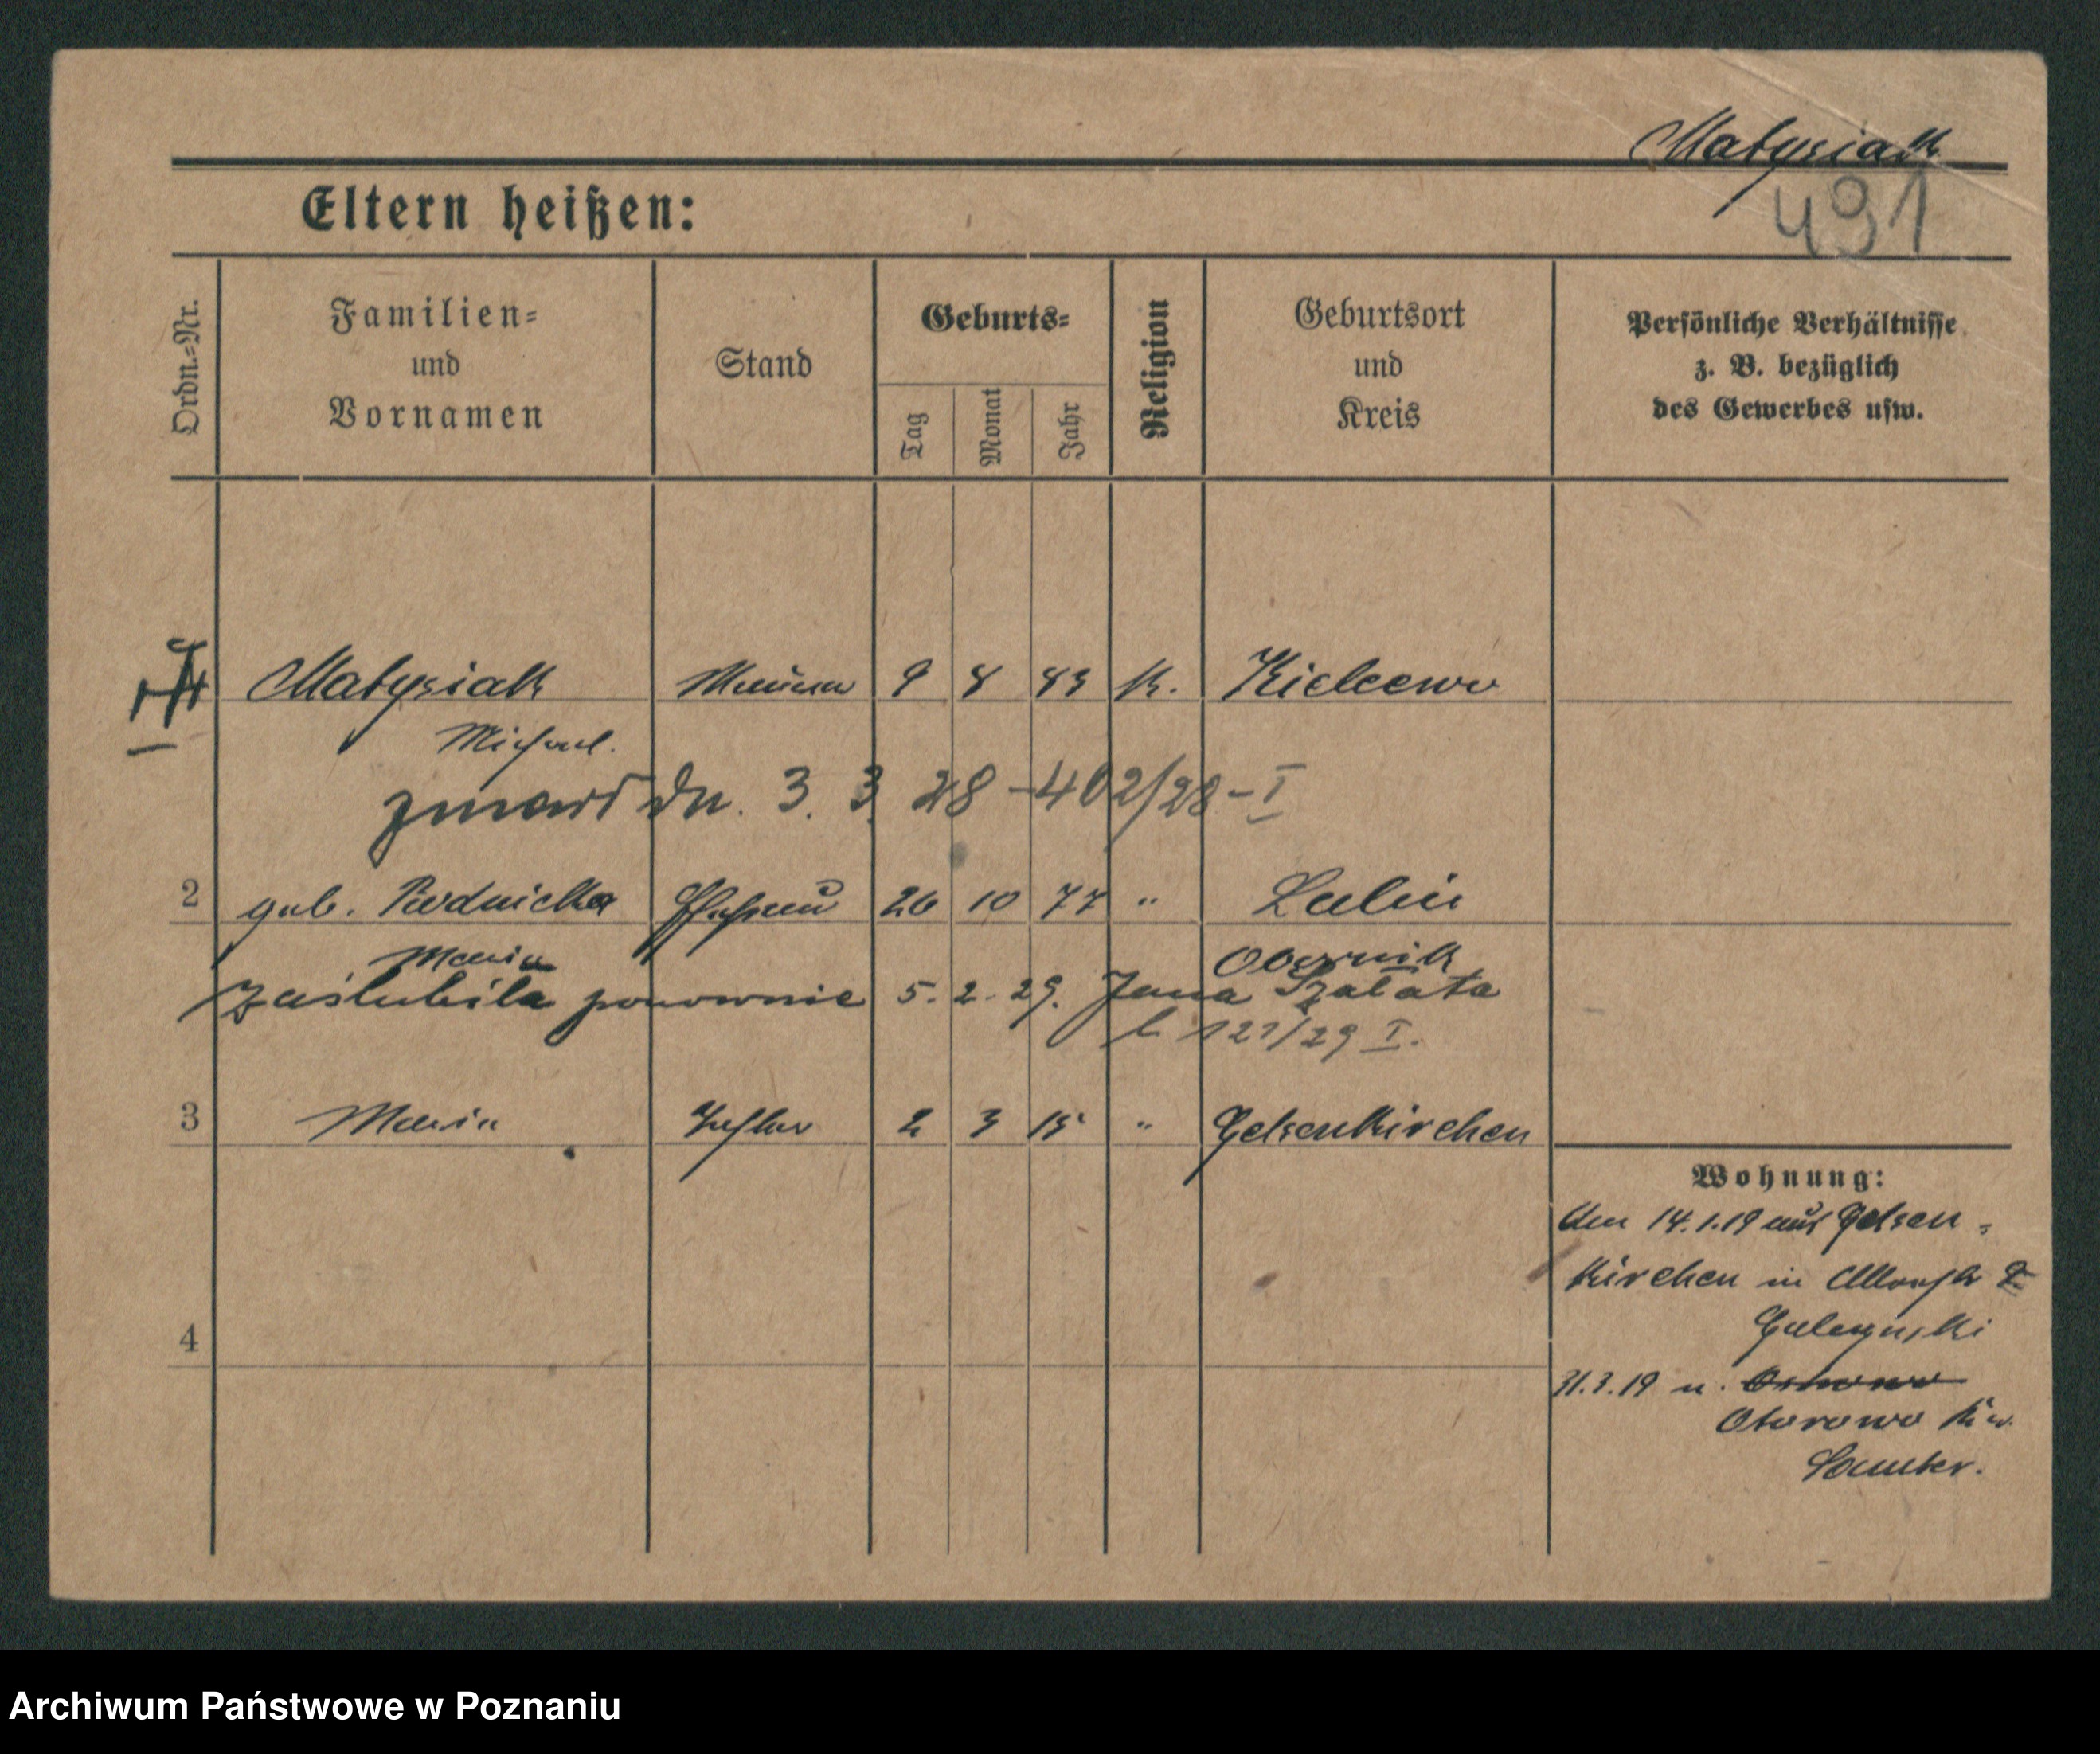 Matysiak
491
Eltern heißen:
Ordn.-Nr.
Familien-
und
Vornamen
Stand
Geburts-
Tag
Monat
Jahr
Religion
Geburtsort
und
Kreis
Persönliche Verhältnisse
z. B. bezüglich
des Gewerbes usw.
Matysiak 9 8 83 K.
Michael.
zmarł dn. 3. 3. 28 - 402/28 - I
2 geb. Ehefrau 26 10 77 " Lubin
Maria Obornik
zaślubiła ponownie 5. 2. 29. Jana Szałata
l 121/29 I.
3 Maria Tochter 2 3 15 " Gelsenkirchen
Wohnung:
Am 14.1.19 aus Gelsen-
kirchen in
31.3.19 n. Ostrowo
Otorowo Kr.
Samter.
4
Archiwum Państwowe w Poznaniu